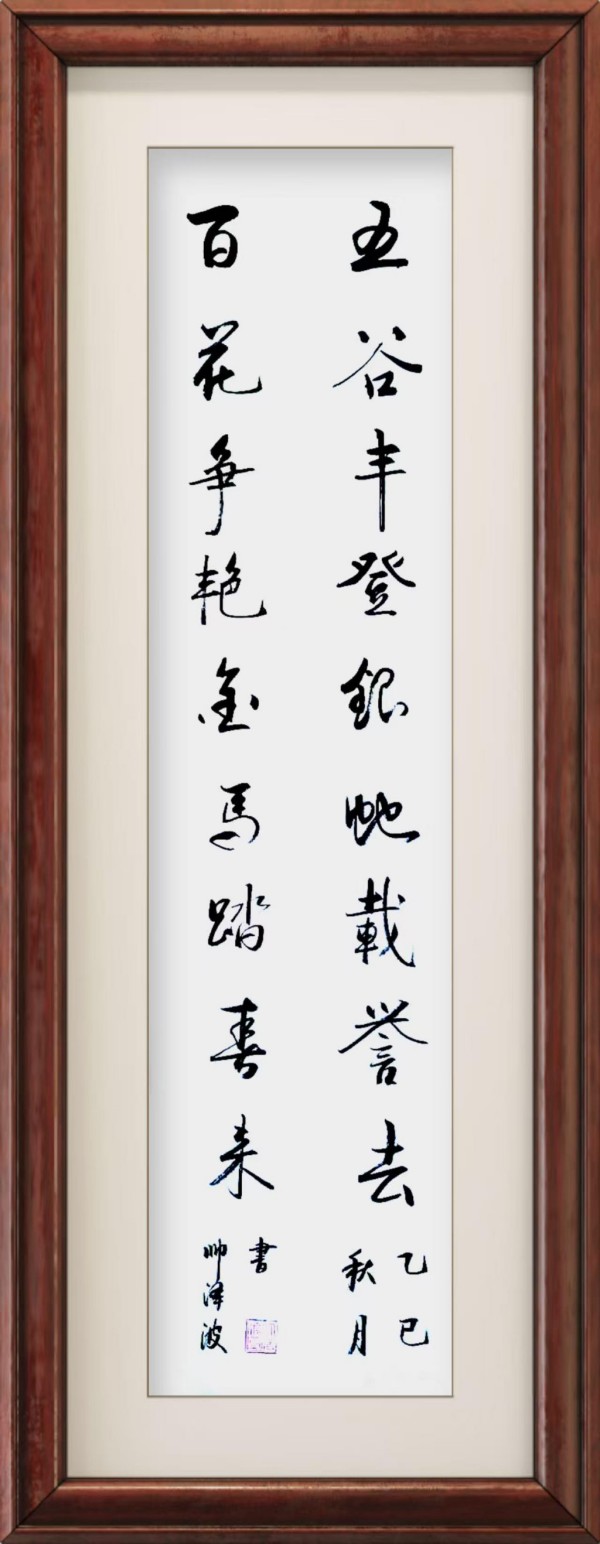 五谷丰登銀蛇載誉去
乙巳
秋月
百花争艳金馬踏春来
書
帅泽波